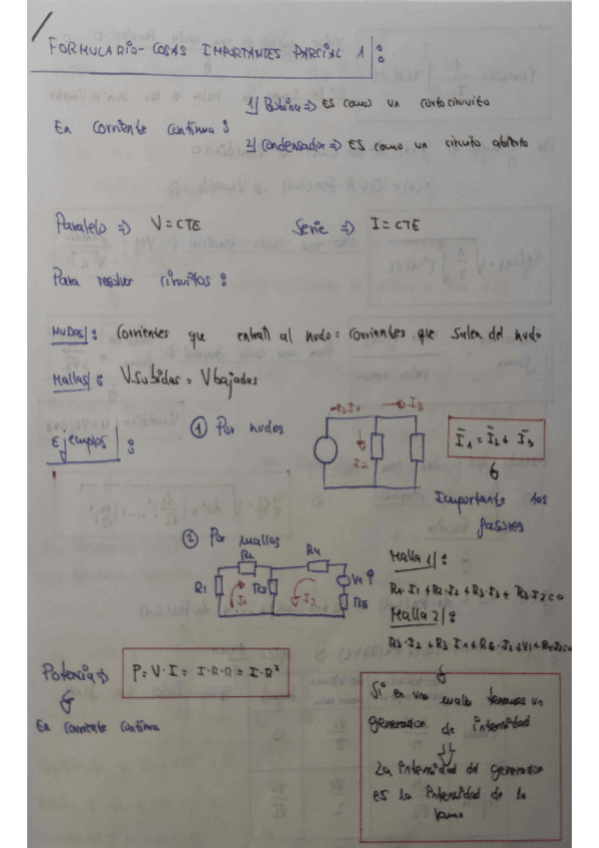 FORMULARIO-COSAS IMPORTANTES PARCIAL 1:
1) Bobina => es como un cortocircuito
En corriente continua:
2) Condensador => es como un circuito abierto
Paralelo => V = CTE
Serie => I = CTE
Para resolver circuitos:
Nudos: Corrientes que entran al nudo = corrientes que salen del nudo
Mallas: V subidas = V bajadas
Ejemplos:
① Por nudos
I1
I3
I2
I1 = I2 + I3
Importante los
fasores
② Por mallas
R4
R1
R3
R5
I1
I2
V1
Malla 1:
R1·I1 + R2·I1 + R3·I1 + R3·I2 = 0
Malla 2:
Potencia =>
P = V · I = I·R·R = I·R²
En corriente continua
Si en una malla tenemos un
generador de intensidad
La intensidad del generador
es la intensidad de la